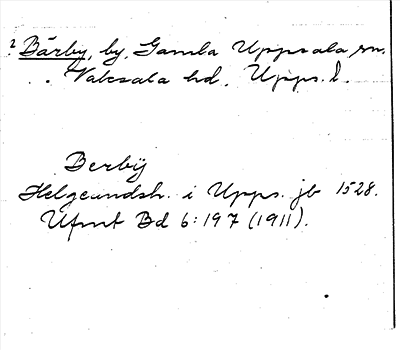 2 Bärby, by, Gamla Uppsala sn.
Vaksala hd. Upps. l.
Berbÿ
Helgeandsh. i Upps. jb 1528.
Ufmt Bd 6:197 (1911).